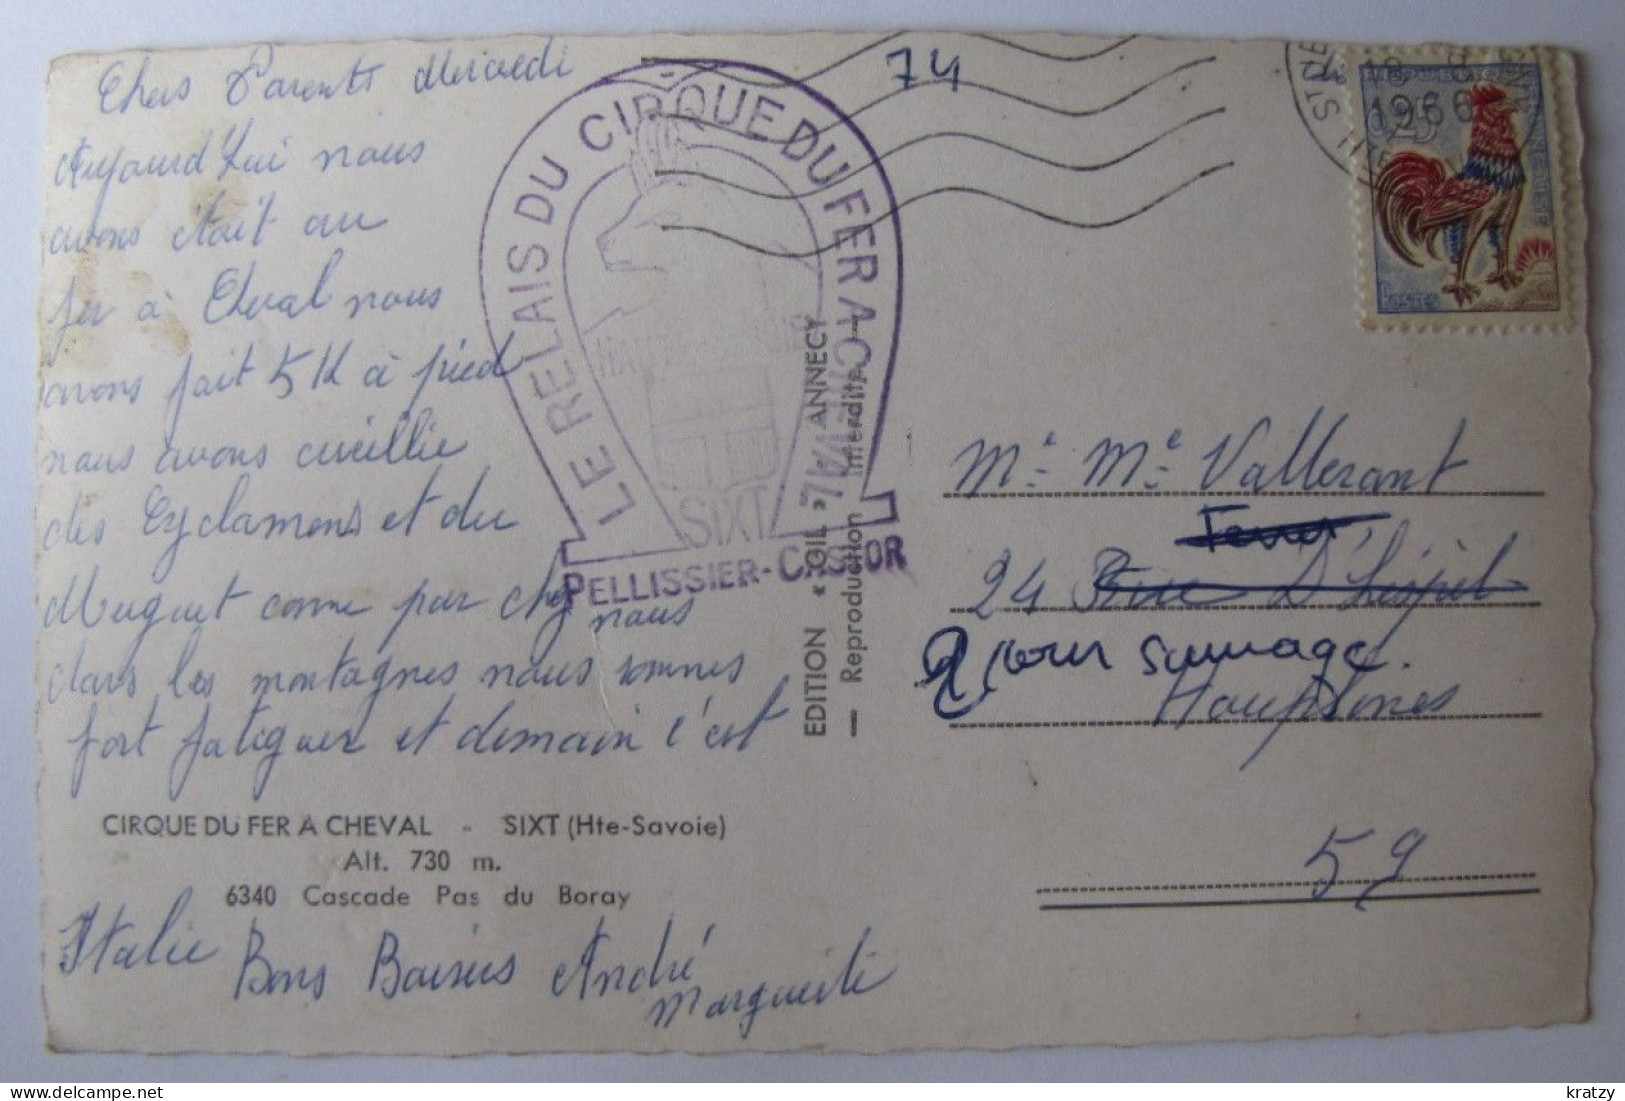 Chers Parents Mercredi
Aujourd hui nous
avons était au
fer à Cheval nous
avons fait 5 K à pied
nous avons cueillie
des Cyclamens et du
Muguet comme par chez nous
dans les montagnes nous sommes
fort fatiguer et demain c'est
CIRQUE DU FER A CHEVAL - SIXT (Hte-Savoie)
Alt. 730 m.
6340 Cascade Pas du Boray
Italie Bons Baisers André
Marguerite
74
LE RELAIS DU CIRQUE DU FER A CHEVAL
HAUTE-SAVOIE
SIXT
PELLISSIER-CASTOR
EDITION « SOIL » ANNECY
— Reproduction interdite —
18
1966
POSTES
Mr. Me Vallerant
24 Rue D'
Cour Sauvage.
Houplines
59
kratzy